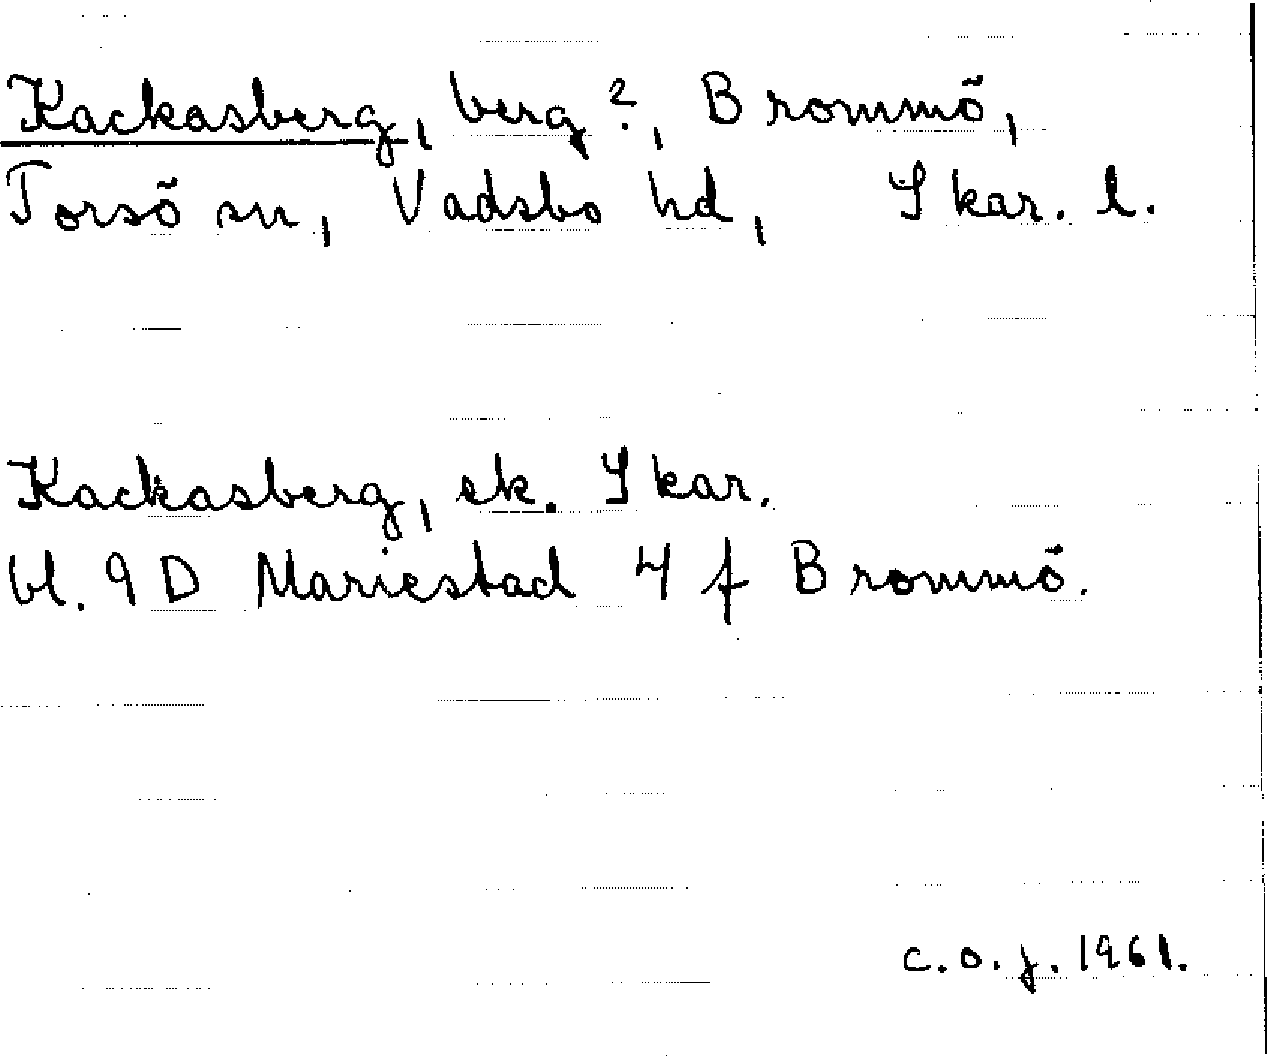 Kackasberg, berg?, Brommö,
Torsö sn, Vadsbo hd, Skar. l.
Kackasberg, ek. Skar.
bl. 9 D Mariestad 4 f Brommö.
c.o.j. 1961.